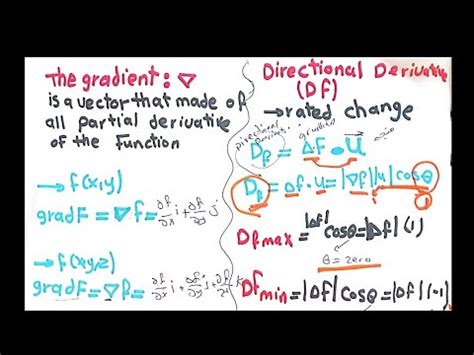 The gradient : ∇
is a vector that made of
all partial derivative
of the function
→ f(x,y)
gradf = ∇f = ∂f/∂x i + ∂f/∂y j
→ f(x,y,z)
gradf = ∇f = ∂f/∂x i + ∂f/∂y j + ∂f/∂z k
Directional Derivative
(Df)
→ rated change
Directional
gradient
متجه
Df = Δf • u
Df = Δf • u = |∇f||u| cosθ
Df max = |Δf| cosθ = |Δf| (1)
θ = zero
Df min = |Δf| cosθ = |Δf| (-1)